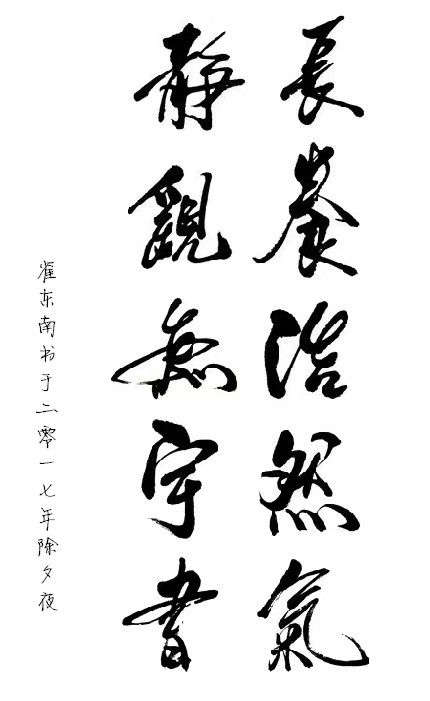 長養浩然氣
靜觀無字書
崔东南书于二零一七年除夕夜